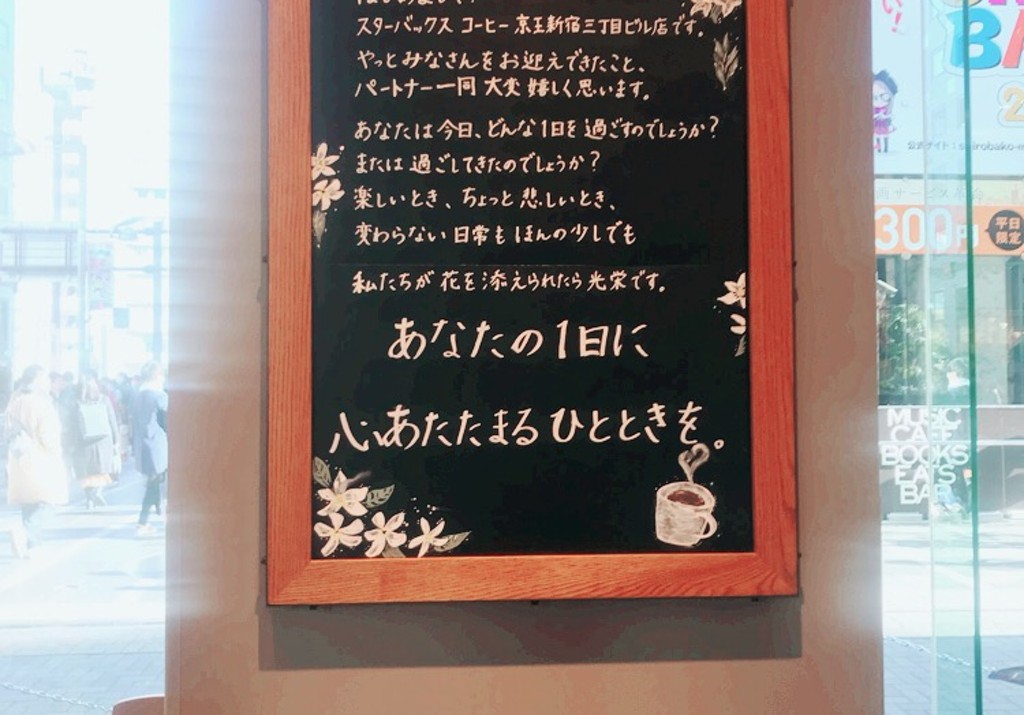 はじめまして！
スターバックス コーヒー 京王新宿三丁目ビル店です。
やっとみなさんをお迎えできたこと、
パートナー一同 大変 嬉しく思います。
あなたは 今日、どんな1日を 過ごすのでしょうか？
または 過ごしてきたのでしょうか？
楽しいとき、ちょっと 悲しいとき、
変わらない 日常も ほんの少しでも
私たちが 花を 添えられたら 光栄です。
あなたの1日に
心あたたまる ひとときを。
い!
BA
2
公式サイト：shirobako-m
サービス
300円
平日
限定
MUSIC
CAFE
BOOKS
EATS
BAR